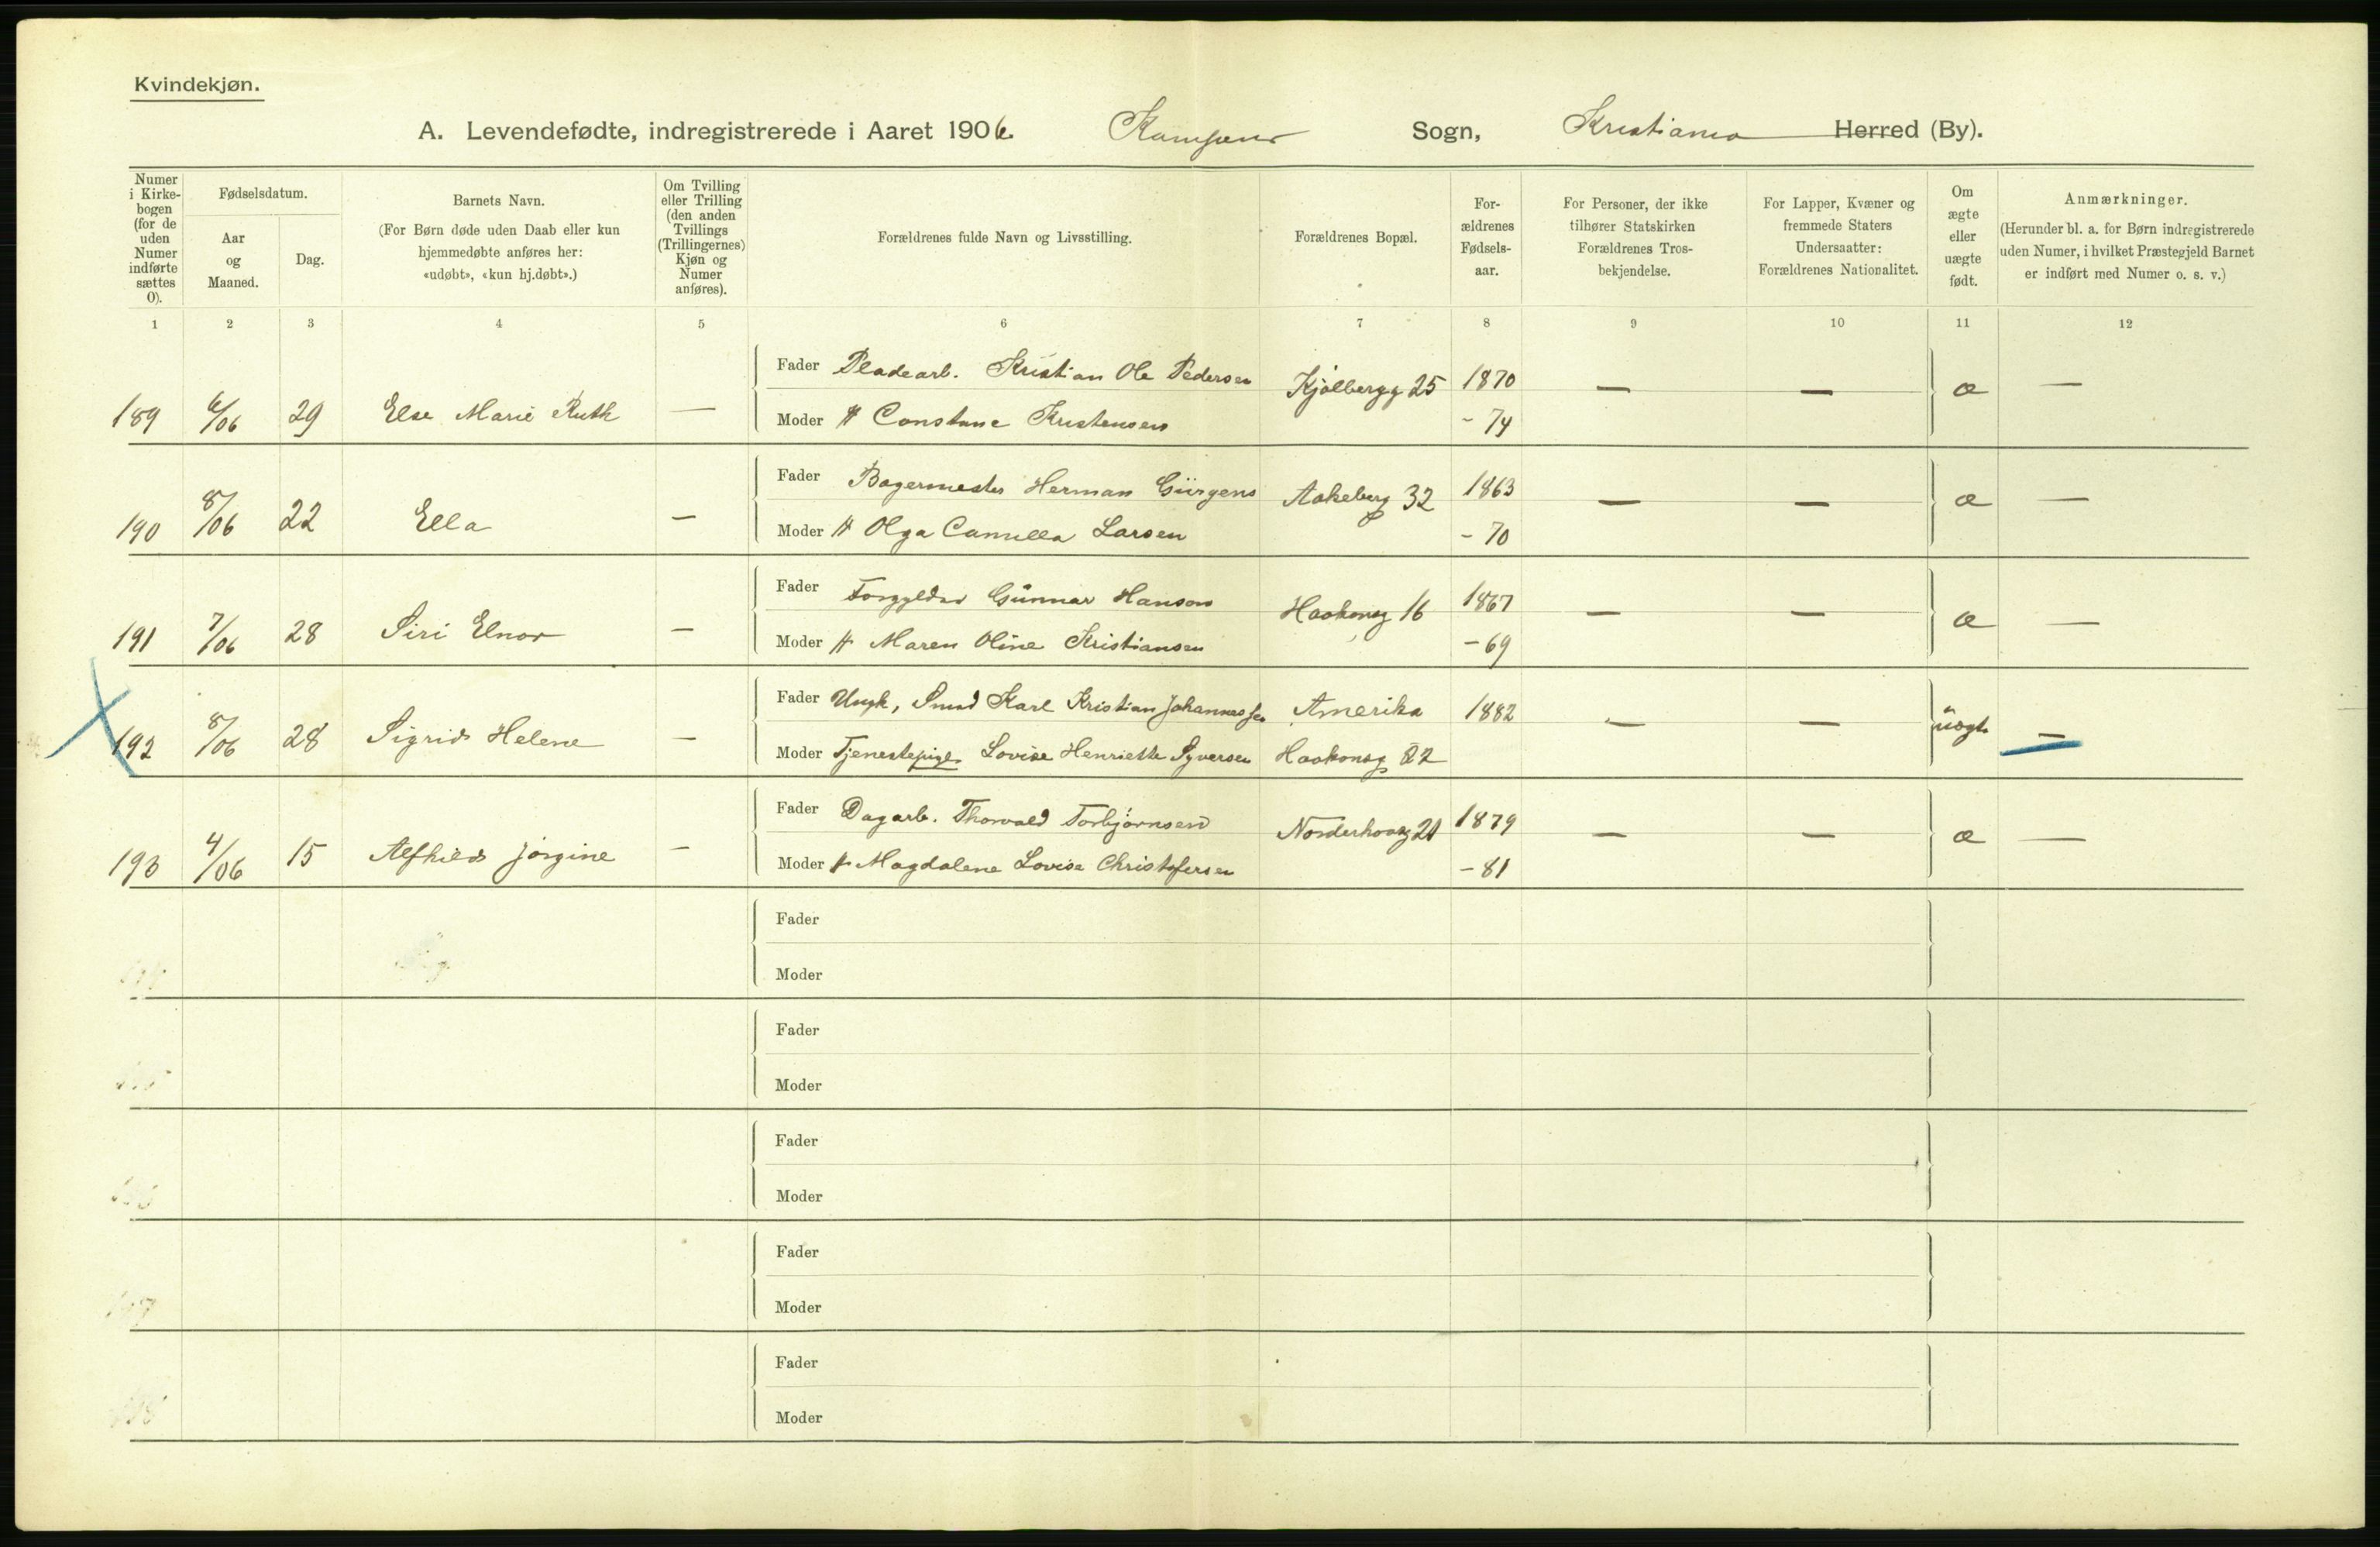 Kvindekjøn.
A. Levendefødte, indregistrerede i Aaret 1906. Kampens Sogn, Kristiania Herred (By).
Numer i Kirkebogen (for de uden Numer indførte sættes 0).
Fødselsdatum.
Aar og Maaned.
Dag.
Barnets Navn.
(For Børn døde uden Daab eller kun hjemmedøbte anføres her: «udøbt», «kun hj.døbt».)
Om Tvilling eller Trilling (den anden Tvillings (Trillingernes) Kjøn og Numer anføres).
Forældrenes fulde Navn og Livsstilling.
Forældrenes Bopæl.
For-ældrenes Fødsels-aar.
For Personer, der ikke tilhører Statskirken Forældrenes Tros-bekjendelse.
For Lapper, Kvæner og fremmede Staters Undersaatter: Forældrenes Nationalitet.
Om ægte eller uægte født.
Anmærkninger.
(Herunder bl. a. for Børn indregistrerede uden Numer, i hvilket Præstegjeld Barnet er indført med Numer o. s. v.)
1 2 3 4 5 6 7 8 9 10 11 12
Fader Pladearb. Kristian Ole Pedersen Kjølbergg 25 1870 — — æ —
189 6/06 29 Else Marie Ruth — Moder H Constance Kristensen - 74
Fader Bagermester Herman Gürgens Aakebergg 32 1863 — — æ —
190 8/06 22 Ella — Moder H Olga Camilla Larsen - 70
Fader Forgylder Gunnar Hanson Haakonsg 16 1867 — — æ —
191 7/06 28 Siri Elnor — Moder H Maren Oline Kristiansen - 69
Fader Ungk, Smed Karl Kristian Johannessen Amerika 1882 — — uægt —
192 8/06 28 Sigrid Helene — Moder Tjenestepige Lovise Henriette Syversen Haakonsg 22
Fader Dagarb. Thorvald Torbjørnsen Norderhovsg 21 1879 — — æ —
193 4/06 15 Alfhild Jørgine — Moder H Magdalene Lovise Christofersen - 81
Fader
Moder
Fader
Moder
Fader
Moder
Fader
Moder
Fader
Moder